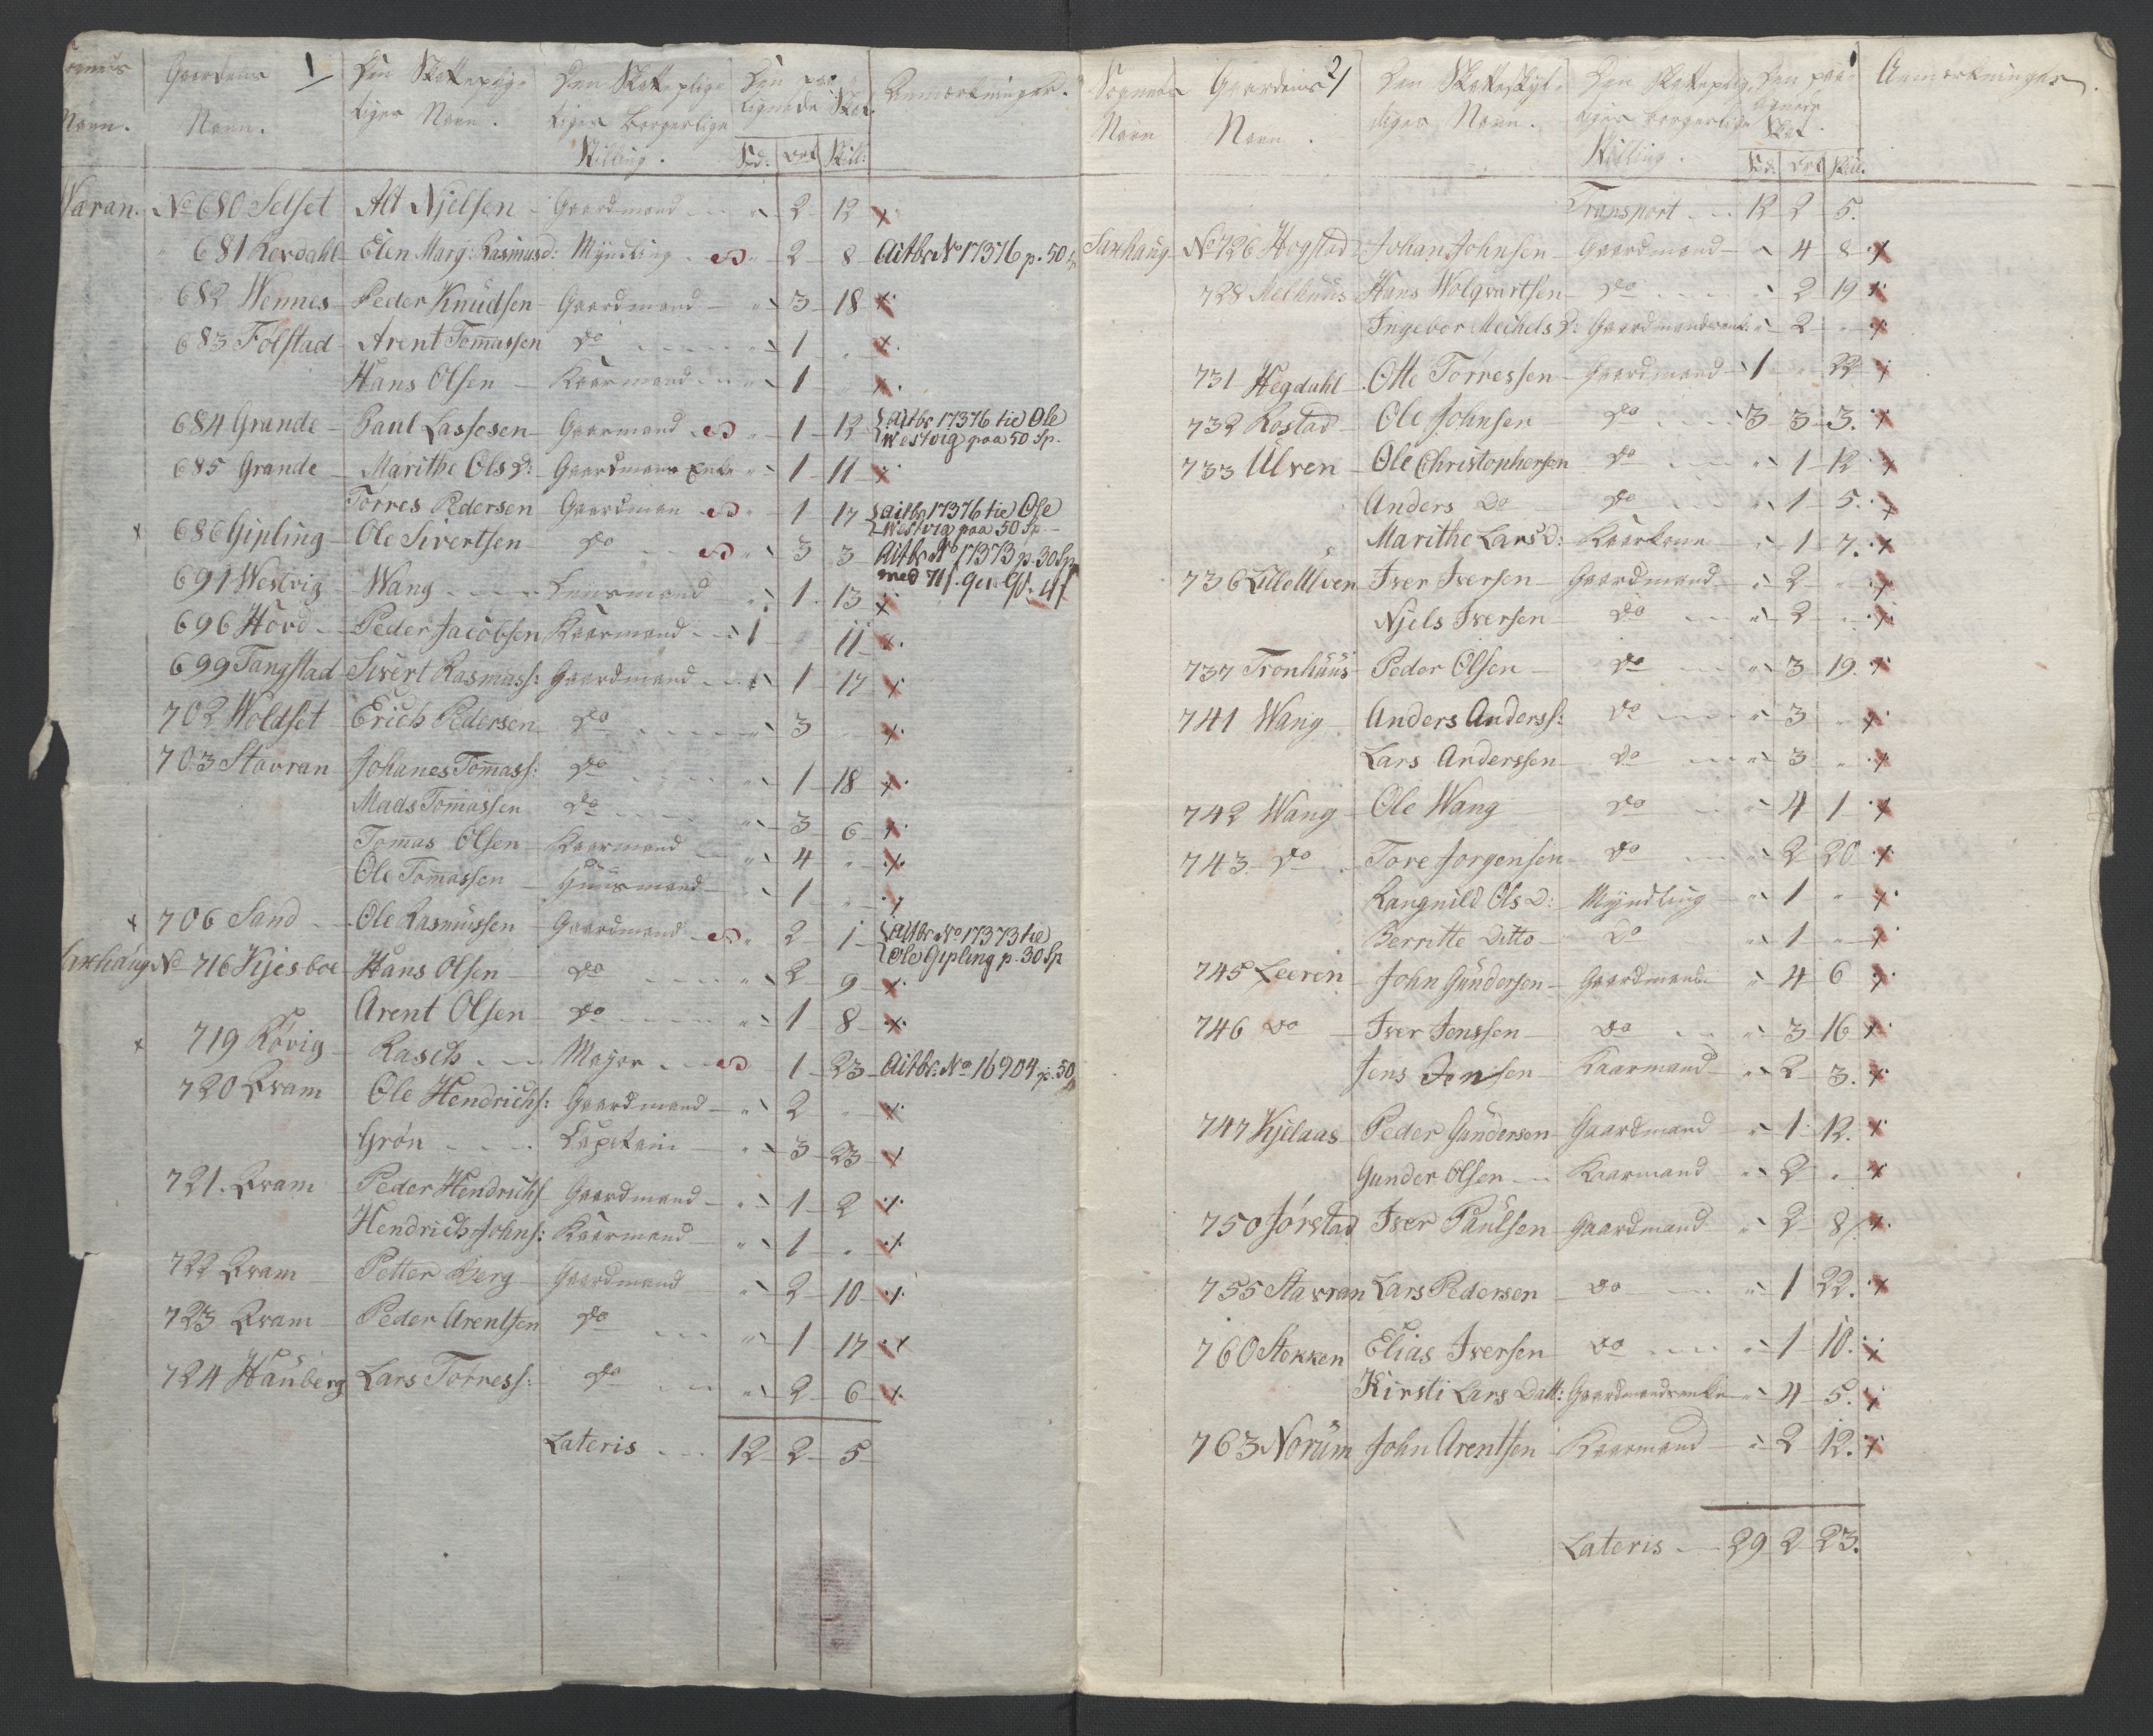 Navn. Gaardens Navn. 1 Den Skattepligtiges Navn. Den Skattepligtiges borgerlige Stilling. Den paalignede Skat. Anmærkninger.
Spd: Ort Skill:
Varan. No 680 Selset Alt Njelsen Gaardmand " 2 12 x
681 Kovdahl Elen Marg: Rasmusd: Myndling " 2 8 Aitbr No 17376 p. 50
682 Wennes Peder Knudsen Gaardmand " 3 18 x
683 Følstad Arent Tomassen do " 1 " x
Hans Olsen Kaarmand " 1 " x
684 Grande Paul Lassesen Gaarmand " 1 12 aitbr 17376 til Ole
Westvig paa 50 Sp.
685 Grande Marithe Ols D: Gaardmans Enke " 1 11 x
Torres Pedersen Gaardman " 1 17 aitbr 17376 til Ole
Westvig paa 50 Sp
x 686 Gipling Ole Sivertsen do " 3 3 Aitbr No 17373 p. 30 Sp
691 Westvig Wang Lensmand " 1 13 x
696 Hovd Peder Jacobsen Kaarmand 1 " 11 x
699 Tangstad Sivert Rasmuss: Gaardmand " 1 17 x
702 Woldset Erich Pedersen do " 3 " x
703 Stavran Johanes Tomass: do " 1 18 x
Mads Tomassen do " 3 6 x
Tomas Olsen Kaarmand " 4 " x
Ole Tomassen Huusmand " 1 " x
x 706 Sand Ole Rasmussen Gaardmand " 2 1 Aitbr No 17373 til
Ole Gipling p. 30 Sp
No 716 Kjesboe Hans Olsen do " 2 9 x
Arent Olsen do " 1 8 x
x 719 Rørig Rasch Major 1 23 Aitbr. No 16904 p. 50
720 Qvam Ole Hendrichs: Gaardmand " 2 " x
Grøn Capitain " 3 23 x
721. Qvam Peder Hendrichs Gaardmand " 1 2 x
Hendrich Johns: Kaarmand " 1 " x
722 Qvam Petter Berg Gaardmand " 2 10 x
723 Qvam Peder Arentsen do " 1 17 x
724 Hauberg Lars Torress: do " 2 6 x
Lateris 12 2 5
Sognets Navn Gaardens Navn. 2 Den Skatteskyldiges Navn. Den Skattepligtiges borgerlige Stilling. Den paalignede Skat. Anmærkninger.
Spd: Ort Skill.
Transport 12 2 5.
Saxhaug No 726 Hogstad Johan Johnsen Gaardmand " 4 8 x
728 Melhuus Hans Wolqvartsen do " 2 19 x
Ingebor Mechels D: Gaardmandsenk: " 2 " x
731 Hegdahl Otte Torressen Gaardmand 1 " 22 x
732 Rostad Ole Johnsen do 3 3 3. x
733 Ulven Ole Christophersen do " 1 12 x
Anders Do do " 1 5. x
Marithe Lars D: Kaarkone " 1 7. x
736 Lille Ulven Iver Iversen Gaardmand " 2 " x
Njels Iversen do " 2 " x
737 Tronhuus Peder Olsen do " 3 19. x
741 Wang Anders Anderss: do " 3 " x
Lars Anderssen do " 3 " x
742 Wang Ole Wang do " 4 1 x
743 do Tore Jorgensen do " 2 20 x
Rangnild Ols D: Myndling " 1 " x
Berritte Ditto do " 1 " x
745 Leeren John Gundersen Gaardmand " 4 6 x
746 do Iver Jenssen do " 3 16 x
Jens Jensen Kaarmand " 2 3. x
747 Kjelaas Peder Gundersen Gaardmand " 1 12. x
Gunder Olsen Kaarmand " 2 " x
750 Jørstad Iver Paulsen Gaardmand " 2 8 x
755 Stavran Lars Pedersen do " 1 22. x
760 Stokken Elias Iversen do " 1 10. x
Kirsti Lars Datt: Gaardmandsenke " 4 5. x
763 Norum John Arentsen Kaarmand " 2 12. x
Lateris 29 2 23.